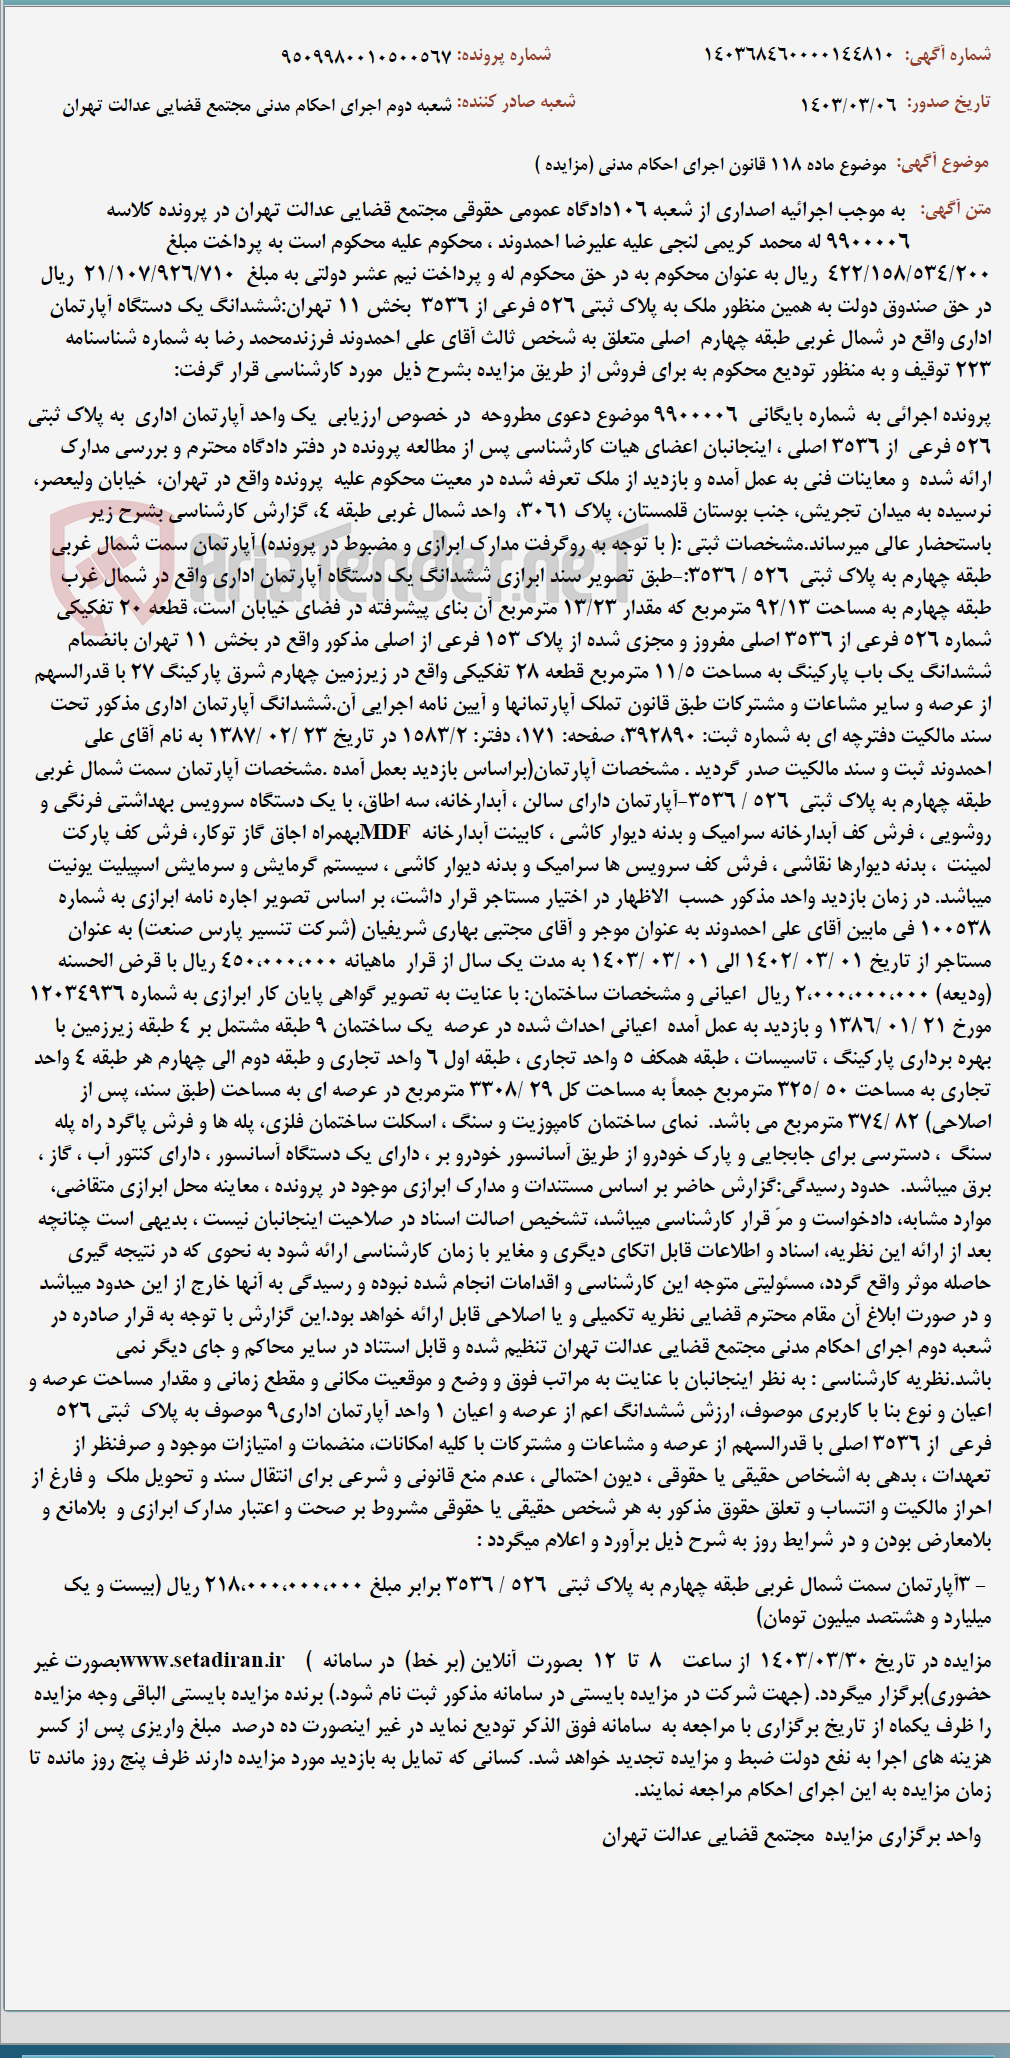 شماره آگهی: ۱۴۰۳۶۸۴۶۰۰۰۰۱۴۴۸۱۰ شماره پرونده: ۹۵۰۹۹۸۰۰۱۰۵۰۰۵۶۷
تاریخ صدور: ۱۴۰۳/۰۳/۰۶ شعبه صادر کننده: شعبه دوم اجرای احکام مدنی مجتمع قضایی عدالت تهران
موضوع آگهی: موضوع ماده ۱۱۸ قانون اجرای احکام مدنی (مزایده )
متن آگهی: به موجب اجرائیه اصداری از شعبه ۱۰۶دادگاه عمومی حقوقی مجتمع قضایی عدالت تهران در پرونده کلاسه
۹۹۰۰۰۰۶ له محمد کریمی لنجی علیه علیرضا احمدوند ، محکوم علیه محکوم است به پرداخت مبلغ
۴۲۲/۱۵۸/۵۳۴/۲۰۰ ریال به عنوان محکوم به در حق محکوم له و پرداخت نیم عشر دولتی به مبلغ ۲۱/۱۰۷/۹۲۶/۷۱۰ ریال
در حق صندوق دولت به همین منظور ملک به پلاک ثبتی ۵۲۶ فرعی از ۳۵۳۶ بخش ۱۱ تهران:ششدانگ یک دستگاه آپارتمان
اداری واقع در شمال غربی طبقه چهارم اصلی متعلق به شخص ثالث آقای علی احمدوند فرزندمحمد رضا به شماره شناسنامه
۲۲۳ توقیف و به منظور تودیع محکوم به برای فروش از طریق مزایده بشرح ذیل مورد کارشناسی قرار گرفت:
پرونده اجرائی به شماره بایگانی ۹۹۰۰۰۰۶ موضوع دعوی مطروحه در خصوص ارزیابی یک واحد آپارتمان اداری به پلاک ثبتی
۵۲۶ فرعی از ۳۵۳۶ اصلی ، اینجانبان اعضای هیات کارشناسی پس از مطالعه پرونده در دفتر دادگاه محترم و بررسی مدارک
ارائه شده و معاینات فنی به عمل آمده و بازدید از ملک تعرفه شده در معیت محکوم علیه پرونده واقع در تهران، خیابان ولیعصر،
نرسیده به میدان تجریش، جنب بوستان قلمستان، پلاک ۳۰۶۱، واحد شمال غربی طبقه ۴، گزارش کارشناسی بشرح زیر
باستحضار عالی میرساند.مشخصات ثبتی :( با توجه به روگرفت مدارک ابرازی و مضبوط در پرونده) آپارتمان سمت شمال غربی
طبقه چهارم به پلاک ثبتی ۵۲۶ / ۳۵۳۶:-طبق تصویر سند ابرازی ششدانگ یک دستگاه آپارتمان اداری واقع در شمال غرب
طبقه چهارم به مساحت ۹۲/۱۳ مترمربع که مقدار ۱۳/۲۳ مترمربع آن بنای پیشرفته در فضای خیابان است، قطعه ۲۰ تفکیکی
شماره ۵۲۶ فرعی از ۳۵۳۶ اصلی مفروز و مجزی شده از پلاک ۱۵۳ فرعی از اصلی مذکور واقع در بخش ۱۱ تهران بانضمام
ششدانگ یک باب پارکینگ به مساحت ۱۱/۵ مترمربع قطعه ۲۸ تفکیکی واقع در زیرزمین چهارم شرق پارکینگ ۲۷ با قدرالسهم
از عرصه و سایر مشاعات و مشترکات طبق قانون تملک آپارتمانها و آیین نامه اجرایی آن.ششدانگ آپارتمان اداری مذکور تحت
سند مالکیت دفترچه ای به شماره ثبت: ۳۹۲۸۹۰، صفحه: ۱۷۱، دفتر: ۱۵۸۳/۲ در تاریخ ۲۳ /۰۲ /۱۳۸۷ به نام آقای علی
احمدوند ثبت و سند مالکیت صدر گردید . مشخصات آپارتمان(براساس بازدید بعمل آمده .مشخصات آپارتمان سمت شمال غربی
طبقه چهارم به پلاک ثبتی ۵۲۶ / ۳۵۳۶-آپارتمان دارای سالن ، آبدارخانه، سه اطاق، با یک دستگاه سرویس بهداشتی فرنگی و
روشویی ، فرش کف آبدارخانه سرامیک و بدنه دیوار کاشی ، کابینت آبدارخانه MDFبهمراه اجاق گاز توکار، فرش کف پارکت
لمینت ، بدنه دیوارها نقاشی ، فرش کف سرویس ها سرامیک و بدنه دیوار کاشی ، سیستم گرمایش و سرمایش اسپیلیت یونیت
میباشد. در زمان بازدید واحد مذکور حسب الاظهار در اختیار مستاجر قرار داشت، بر اساس تصویر اجاره نامه ابرازی به شماره
۱۰۰۵۳۸ فی مابین آقای علی احمدوند به عنوان موجر و آقای مجتبی بهاری شریفیان (شرکت تنسیر پارس صنعت) به عنوان
مستاجر از تاریخ ۰۱ /۰۳ /۱۴۰۲ الی ۰۱ /۰۳ /۱۴۰۳ به مدت یک سال از قرار ماهیانه ۴۵۰،۰۰۰،۰۰۰ ریال با قرض الحسنه
(ودیعه) ۲،۰۰۰،۰۰۰،۰۰۰ ریال اعیانی و مشخصات ساختمان: با عنایت به تصویر گواهی پایان کار ابرازی به شماره ۱۲۰۳۴۹۳۶
مورخ ۲۱ /۰۱ /۱۳۸۶ و بازدید به عمل آمده اعیانی احداث شده در عرصه یک ساختمان ۹ طبقه مشتمل بر ۴ طبقه زیرزمین با
بهره برداری پارکینگ ، تاسیسات ، طبقه همکف ۵ واحد تجاری ، طبقه اول ۶ واحد تجاری و طبقه دوم الی چهارم هر طبقه ۴ واحد
تجاری به مساحت ۵۰ /۳۲۵ مترمربع جمعاً به مساحت کل ۲۹ /۳۳۰۸ مترمربع در عرصه ای به مساحت (طبق سند، پس از
اصلاحی) ۸۲ /۳۷۴ مترمربع می باشد. نمای ساختمان کامپوزیت و سنگ ، اسکلت ساختمان فلزی، پله ها و فرش پاگرد راه پله
سنگ ، دسترسی برای جابجایی و پارک خودرو از طریق آسانسور خودرو بر ، دارای یک دستگاه آسانسور ، دارای کنتور آب ، گاز ،
برق میباشد. حدود رسیدگی:گزارش حاضر بر اساس مستندات و مدارک ابرازی موجود در پرونده ، معاینه محل ابرازی متقاضی،
موارد مشابه، دادخواست و مرّ قرار کارشناسی میباشد، تشخیص اصالت اسناد در صلاحیت اینجانبان نیست ، بدیهی است چنانچه
بعد از ارائه این نظریه، اسناد و اطلاعات قابل اتکای دیگری و مغایر با زمان کارشناسی ارائه شود به نحوی که در نتیجه گیری
حاصله موثر واقع گردد، مسئولیتی متوجه این کارشناسی و اقدامات انجام شده نبوده و رسیدگی به آنها خارج از این حدود میباشد
و در صورت ابلاغ آن مقام محترم قضایی نظریه تکمیلی و یا اصلاحی قابل ارائه خواهد بود.این گزارش با توجه به قرار صادره در
شعبه دوم اجرای احکام مدنی مجتمع قضایی عدالت تهران تنظیم شده و قابل استناد در سایر محاکم و جای دیگر نمی
باشد.نظریه کارشناسی : به نظر اینجانبان با عنایت به مراتب فوق و وضع و موقعیت مکانی و مقطع زمانی و مقدار مساحت عرصه و
اعیان و نوع بنا با کاربری موصوف، ارزش ششدانگ اعم از عرصه و اعیان ۱ واحد آپارتمان اداری۹ موصوف به پلاک ثبتی ۵۲۶
فرعی از ۳۵۳۶ اصلی با قدرالسهم از عرصه و مشاعات و مشترکات با کلیه امکانات، منضمات و امتیازات موجود و صرفنظر از
تعهدات ، بدهی به اشخاص حقیقی یا حقوقی ، دیون احتمالی ، عدم منع قانونی و شرعی برای انتقال سند و تحویل ملک و فارغ از
احراز مالکیت و انتساب و تعلق حقوق مذکور به هر شخص حقیقی یا حقوقی مشروط بر صحت و اعتبار مدارک ابرازی و بلامانع و
بلامعارض بودن و در شرایط روز به شرح ذیل برآورد و اعلام میگردد :
- ۳آپارتمان سمت شمال غربی طبقه چهارم به پلاک ثبتی ۵۲۶ / ۳۵۳۶ برابر مبلغ ۲۱۸،۰۰۰،۰۰۰،۰۰۰ ریال (بیست و یک
میلیارد و هشتصد میلیون تومان)
مزایده در تاریخ ۱۴۰۳/۰۳/۳۰ از ساعت ۸ تا ۱۲ بصورت آنلاین (بر خط) در سامانه ( www.setadiran.irبصورت غیر
حضوری)برگزار میگردد. (جهت شرکت در مزایده بایستی در سامانه مذکور ثبت نام شود.) برنده مزایده بایستی الباقی وجه مزایده
را ظرف یکماه از تاریخ برگزاری با مراجعه به سامانه فوق الذکر تودیع نماید در غیر اینصورت ده درصد مبلغ واریزی پس از کسر
هزینه های اجرا به نفع دولت ضبط و مزایده تجدید خواهد شد. کسانی که تمایل به بازدید مورد مزایده دارند ظرف پنج روز مانده تا
زمان مزایده به این اجرای احکام مراجعه نمایند.
واحد برگزاری مزایده مجتمع قضایی عدالت تهران
AriaTender.neT